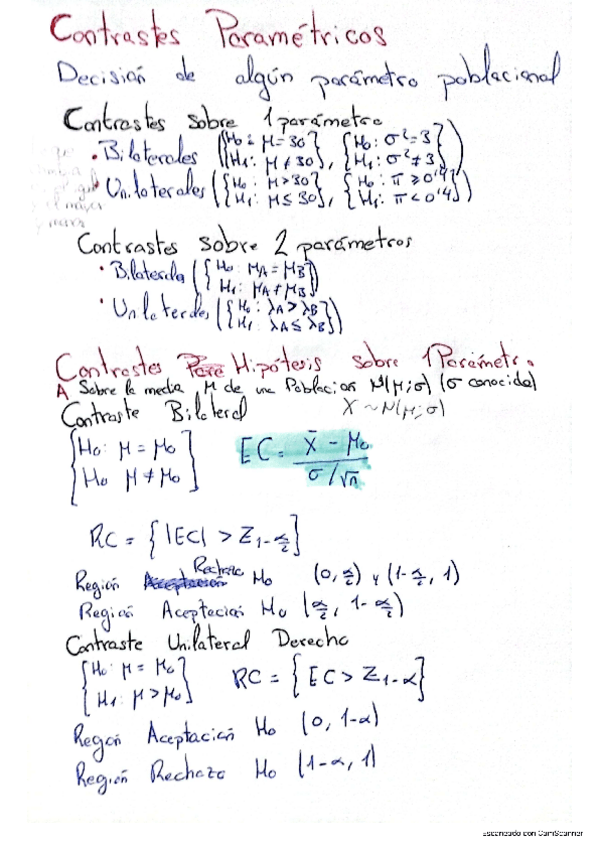 Contrastes Paramétricos
Decisión de algún parámetro poblacional
Contrastes sobre 1 parámetro
• Bilaterales ({H₀: μ=30 H₁: μ≠30}, {H₀: σ²=3 H₁: σ²≠3})
• Unilaterales ({H₀: μ>30 H₁: μ≤30}, {H₀: π≥0'4 H₁: π<0'4})
Contrastes sobre 2 parámetros
• Bilateral ({H₀: μA=μB H₁: μA≠μB})
• Unilaterales ({H₀: λA>λB H₁: λA≤λB})
Contrastes Hipótesis sobre 1 Parámetro
A Sobre la media μ de una Población N(μ;σ) (σ conocida)
Contraste Bilateral X~N(μ;σ)
{H₀: μ=μ₀ H₀ μ≠μ₀} EC = (X̄ - μ₀) / (σ/√n)
RC = {|EC| > Z1-α/2}
Región Rechazo H₀ (0, α/2) y (1-α/2, 1)
Región Aceptación H₀ (α/2, 1-α/2)
Contraste Unilateral Derecho
{H₀: μ=μ₀ H₁: μ>μ₀} RC = {EC > Z1-α}
Región Aceptación H₀ (0, 1-α)
Región Rechazo H₀ (1-α, 1)
Escaneado con CamScanner